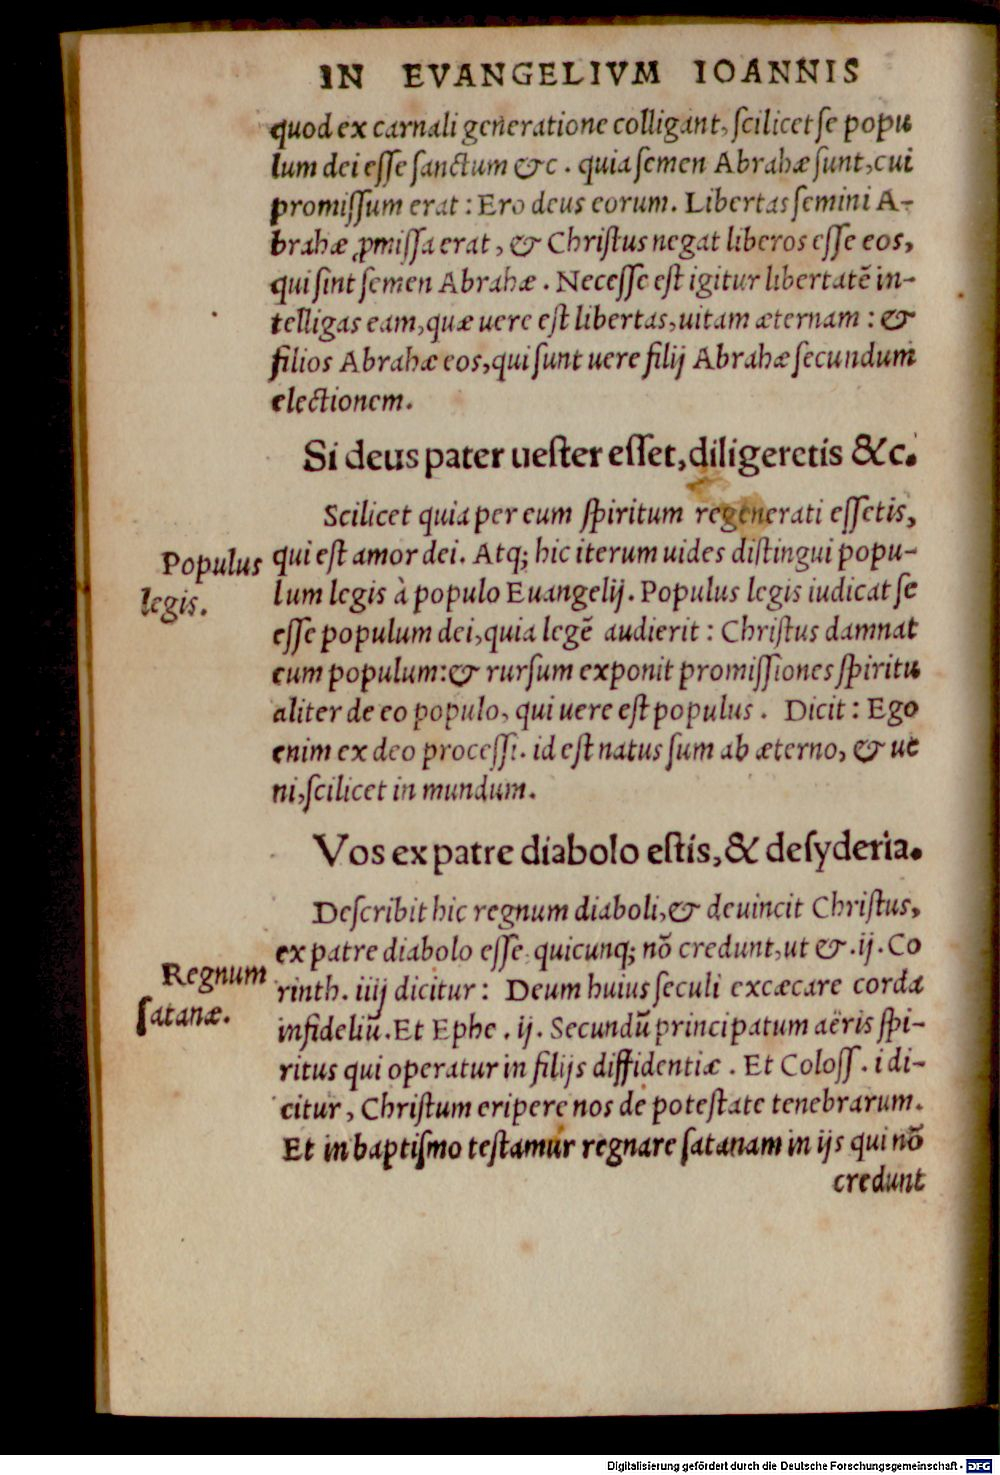 IN EVANGELIVM IOANNIS
quod ex carnali generatione colligant, ſcilicet ſe popu
lum dei eſſe ſanctum &c. quia ſemen Abrahæ ſunt, cui
promiſſum erat: Ero deus eorum. Libertas ſemini A-
brahæ ꝓmiſſa erat, & Chriſtus negat liberos eſſe eos,
qui ſint ſemen Abrahæ. Neceſſe eſt igitur libertatē in-
telligas eam, quæ uere eſt libertas, uitam æternam: &
filios Abrahæ eos, qui ſunt uere filij Abrahæ ſecundum
electionem.
Si deus pater ueſter eſſet, diligeretis &c.
Scilicet quia per eum ſpiritum regenerati eſſetis,
Populus
legis.
qui eſt amor dei. Atq; hic iterum uides diſtingui popu-
lum legis à populo Euangelij. Populus legis iudicat ſe
eſſe populum dei, quia legē audierit: Chriſtus damnat
eum populum: & rurſum exponit promiſſiones ſpiritu
aliter de eo populo, qui uere eſt populus. Dicit: Ego
enim ex deo proceſſi. id eſt natus ſum ab æterno, & ue
ni, ſcilicet in mundum.
Vos ex patre diabolo eſtis, & deſyderia.
Deſcribit hic regnum diaboli, & deuincit Chriſtus,
ex patre diabolo eſſe quicunq; nō credunt, ut & .ij. Co
Regnum
ſatanæ.
rinth. iiij dicitur: Deum huius ſeculi excæcare corda
infideliū. Et Ephe. ij. Secundū principatum aëris ſpi-
ritus qui operatur in filijs diffidentiæ. Et Coloſſ. i di-
citur, Chriſtum eripere nos de poteſtate tenebrarum.
Et in baptiſmo teſtamur regnare ſatanam in ijs qui nō
credunt
Digitalisierung gefördert durch die Deutsche Forschungsgemeinschaft - DFG